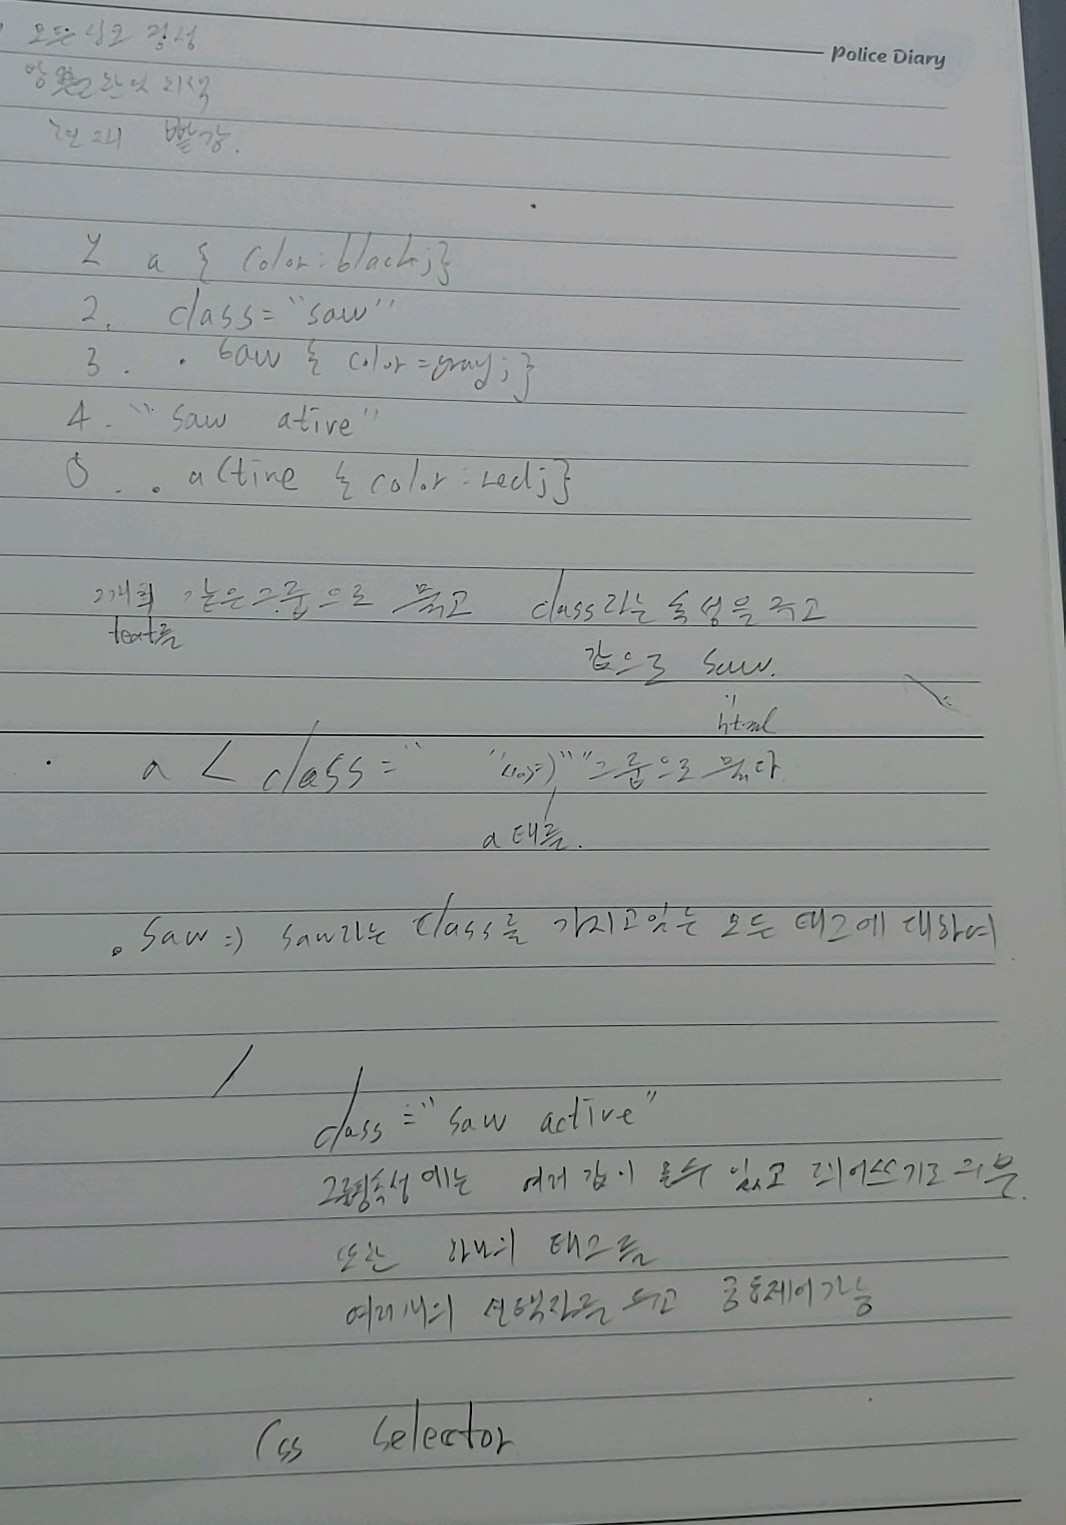 Police Diary
모든 링크 검정
방문한것 회색
현재 빨강.
1. a { color:black;}
2. class="saw"
3. .saw { color=gray;}
4. "saw ative"
5. .active { color:red;}
2개의 같은그룹으로 묶고 class라는 속성을 주고
text를
값으로 saw.
html
a < class=" " 그룹으로 묶다
a 태를.
.saw => saw라는 class를 가지고있는 모든 태그에 대하여
class="saw active"
그룹속성에는 여러 값이 올수 있고 띄어쓰기로 구분.
또한 하나의 태그를
여러개의 선택자를 두고 공동제어가능
Css selector